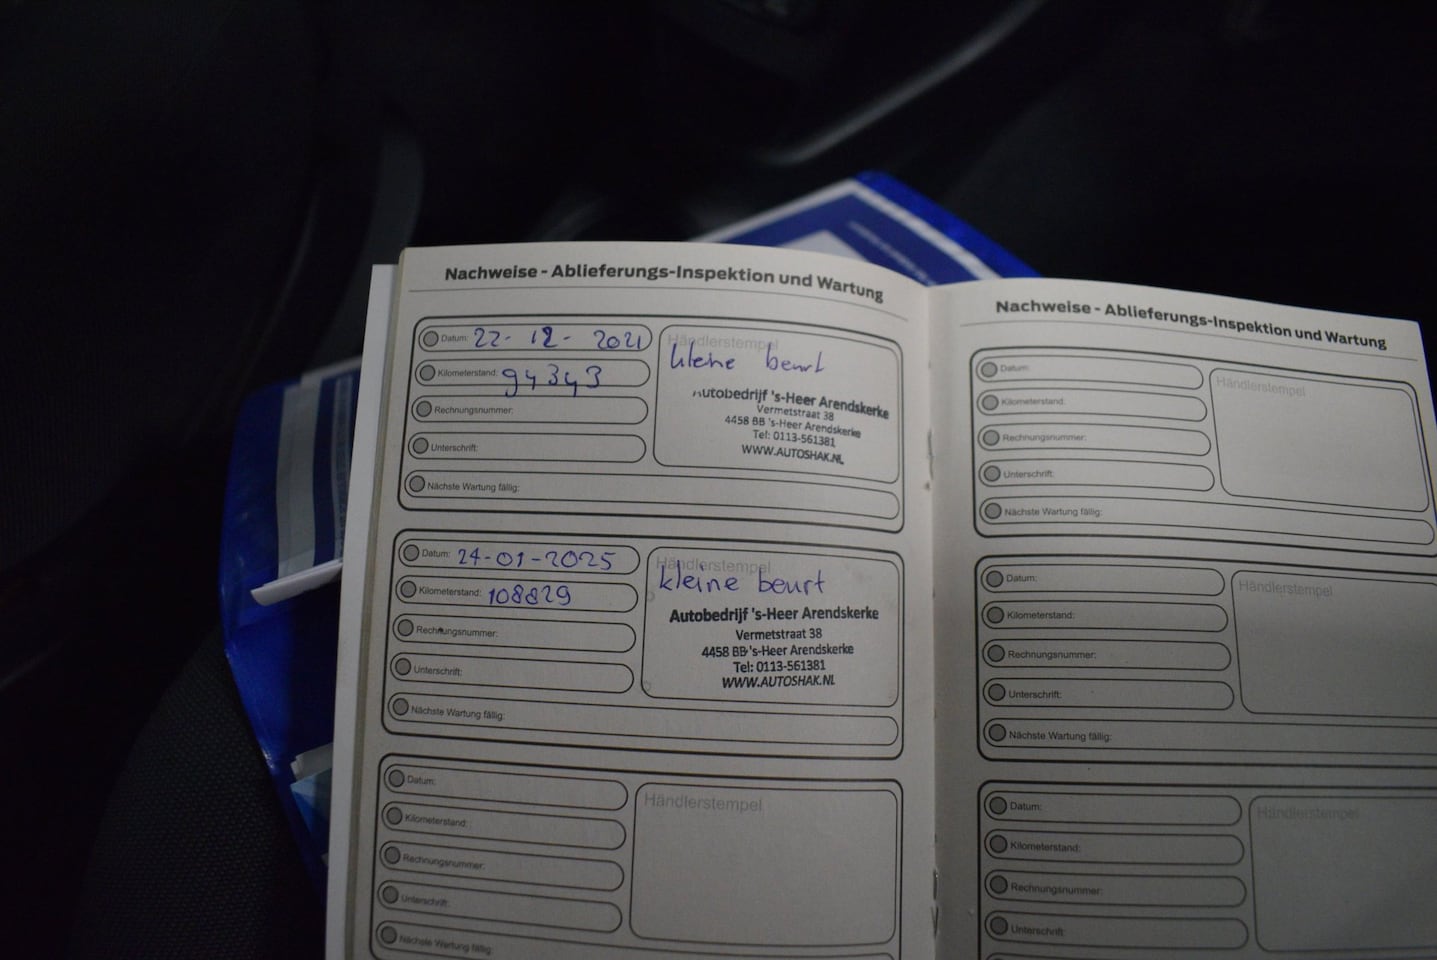 Nachweise - Ablieferungs-Inspektion und Wartung
Datum: 22-12-2021
Kilometerstand: 94343
Rechnungsnummer:
Unterschrift:
Nächste Wartung fällig:
Händlerstempel
kleine beurt
Autobedrijf 's-Heer Arendskerke
Vermetstraat 38
4458 BB 's-Heer Arendskerke
Tel: 0113-561381
WWW.AUTOSHAK.NL
Datum: 24-01-2025
Kilometerstand: 108829
Rechnungsnummer:
Unterschrift:
Nächste Wartung fällig:
Händlerstempel
kleine beurt
Autobedrijf 's-Heer Arendskerke
Vermetstraat 38
4458 BB 's-Heer Arendskerke
Tel: 0113-561381
WWW.AUTOSHAK.NL
Datum:
Kilometerstand:
Rechnungsnummer:
Unterschrift:
Nächste Wartung fällig:
Händlerstempel
Nachweise - Ablieferungs-Inspektion und Wartung
Datum:
Kilometerstand:
Rechnungsnummer:
Unterschrift:
Nächste Wartung fällig:
Händlerstempel
Datum:
Kilometerstand:
Rechnungsnummer:
Unterschrift:
Nächste Wartung fällig:
Händlerstempel
Datum:
Kilometerstand:
Rechnungsnummer:
Unterschrift:
Händlerstempel